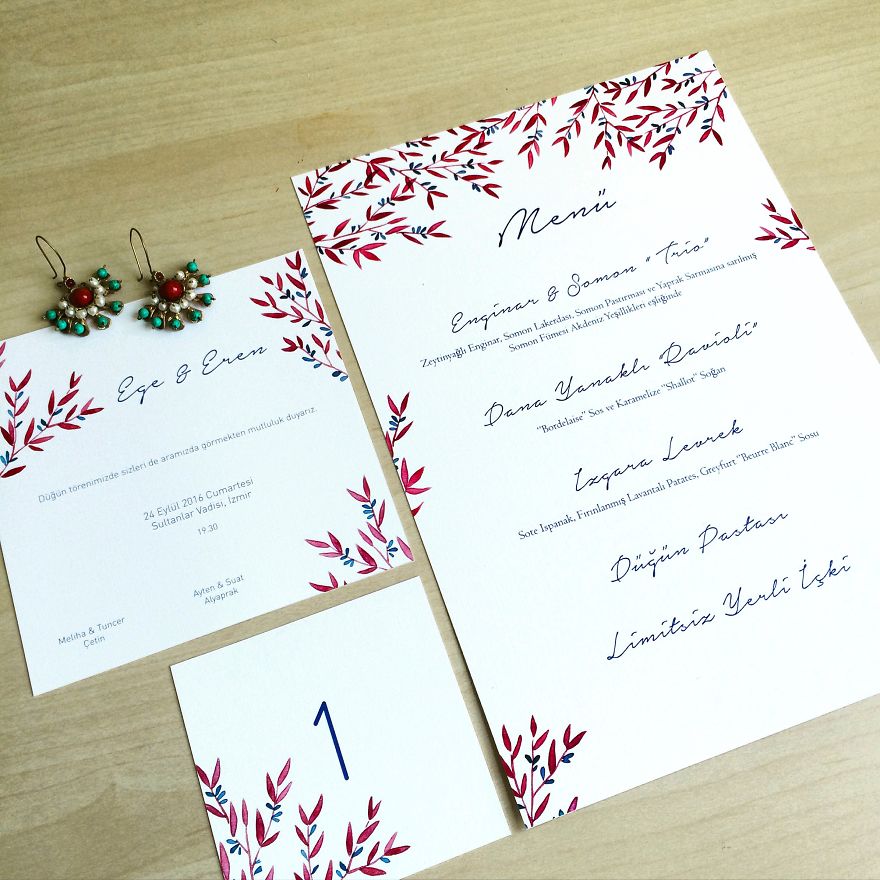 Ege & Eren
Düğün törenimizde sizleri de aramızda görmekten mutluluk duyarız.
24 Eylül 2016 Cumartesi
Sultanlar Vadisi, İzmir
19.30
Meliha & Tuncer
Çetin
Ayten & Suat
Alyaprak
1
Menü
Enginar & Somon "Trio"
Zeytinyağlı Enginar, Somon Lakerdası, Somon Pastırması ve Yaprak Sarmasına sarılmış
Somon Fümesi Akdeniz Yeşillikleri eşliğinde
Dana Yanaklı Ravioli"
"Bordelaise" Sos ve Karamelize "Shallot" Soğan
Izgara Levrek
Sote Ispanak, Fırınlanmış Lavantalı Patates, Greyfurt "Beurre Blanc" Sosu
Düğün Pastası
Limitsiz Yerli İçki